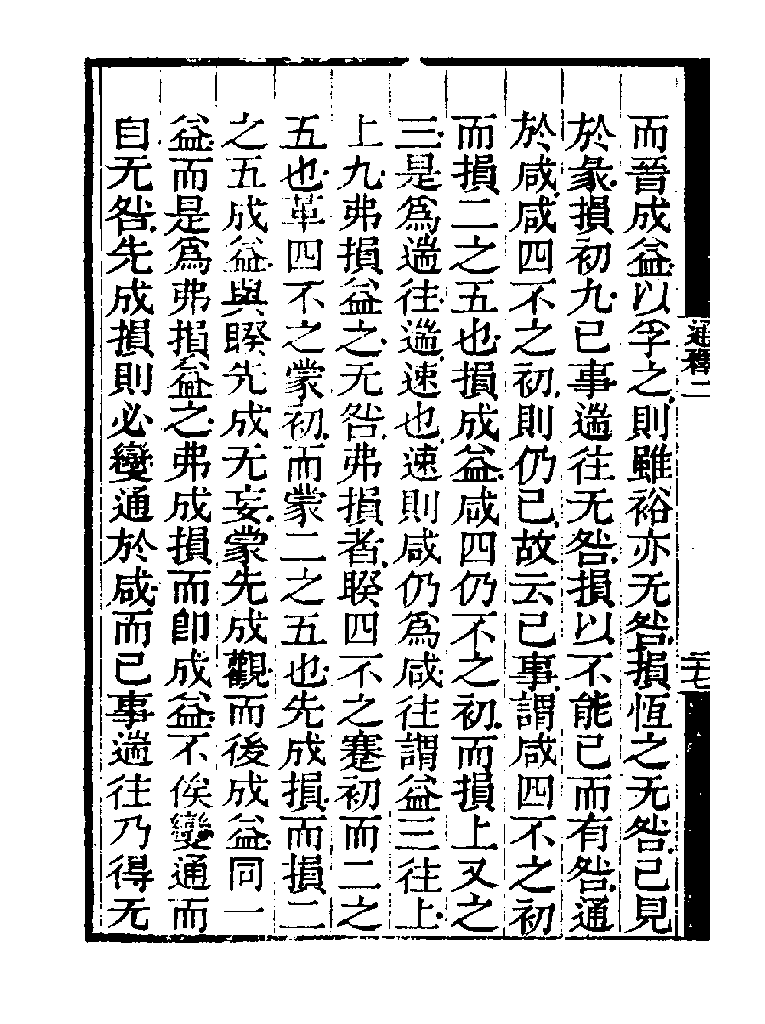 而晉成益以孚之則雖裕亦无咎損恆之无咎已見
於彖損初九已事遄往无咎損以不能已而有咎通
於咸咸四不之初則仍已故云已事謂咸四不之初
而損二之五也損成益咸四仍不之初而損上又之
三是爲遄往遄速也速則咸仍爲咸往謂益三往上
上九弗損益之无咎弗損者睽四不之蹇初而二之
五也革四不之蒙初而蒙二之五也先成損而損二
之五成益與睽先成无妄蒙先成觀而後成益同一
益而是爲弗損益之弗成損而卽成益不俟變通而
自无咎先成損則必變通於咸而已事遄往乃得无
通釋二
二七